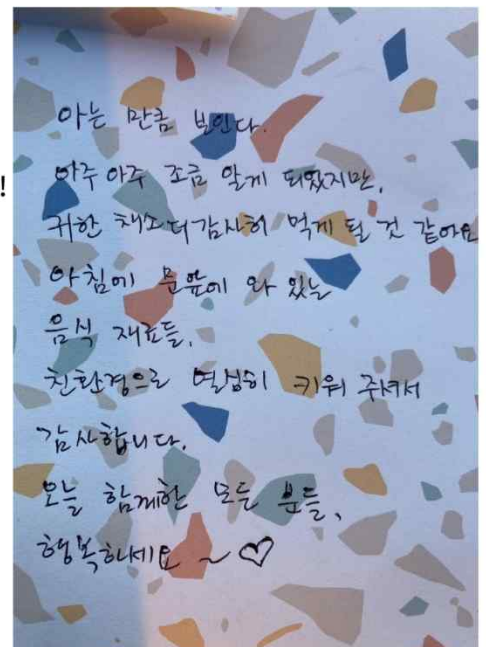 아는 만큼 보인다.
!
아주 아주 조금 알게 되었지만,
귀한 채소 더 감사히 먹게 될 것 같아요
아침에 문앞에 와 있는
음식 재료들,
친환경으로 열심히 키워 주셔서
감사합니다.
오늘 함께한 모든 분들,
행복하세요 ~ ♡